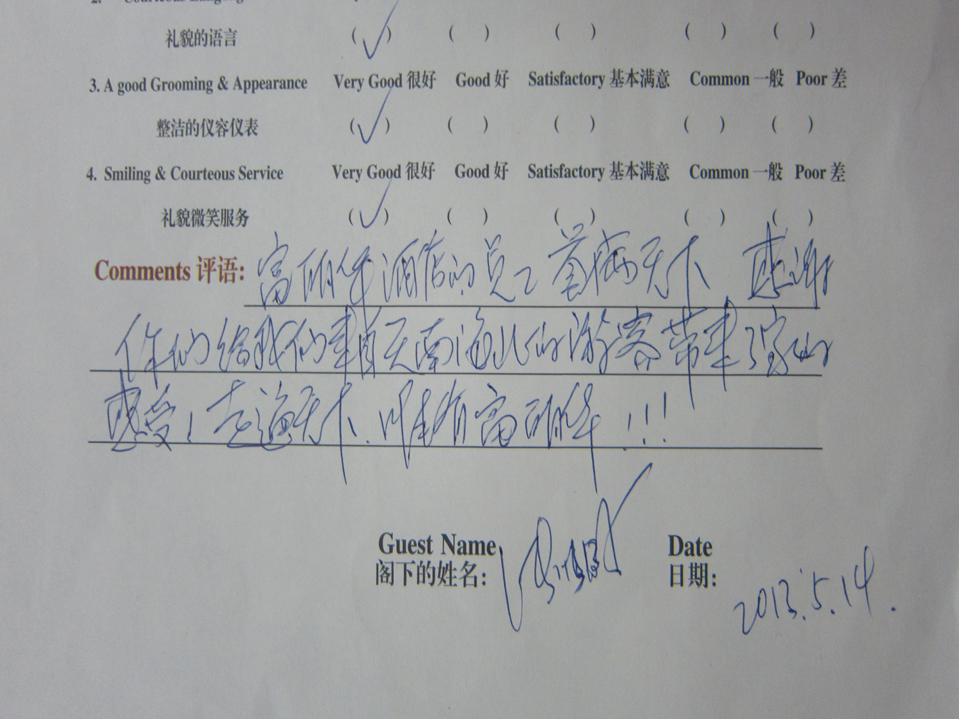 礼貌的语言 ( ✓ ) ( ) ( ) ( ) ( )
3. A good Grooming & Appearance Very Good 很好 Good 好 Satisfactory 基本满意 Common 一般 Poor 差
整洁的仪容仪表 ( ✓ ) ( ) ( ) ( ) ( )
4. Smiling & Courteous Service Very Good 很好 Good 好 Satisfactory 基本满意 Common 一般 Poor 差
礼貌微笑服务 ( ✓ ) ( ) ( ) ( ) ( )
Comments 评语: 富丽华酒店的员工 天下 感谢
你们给我们来自天南海北的游客带来了家的
感受! 走遍天下 唯有富丽华!!!
Guest Name Date
阁下的姓名: 日期:
2013.5.14.